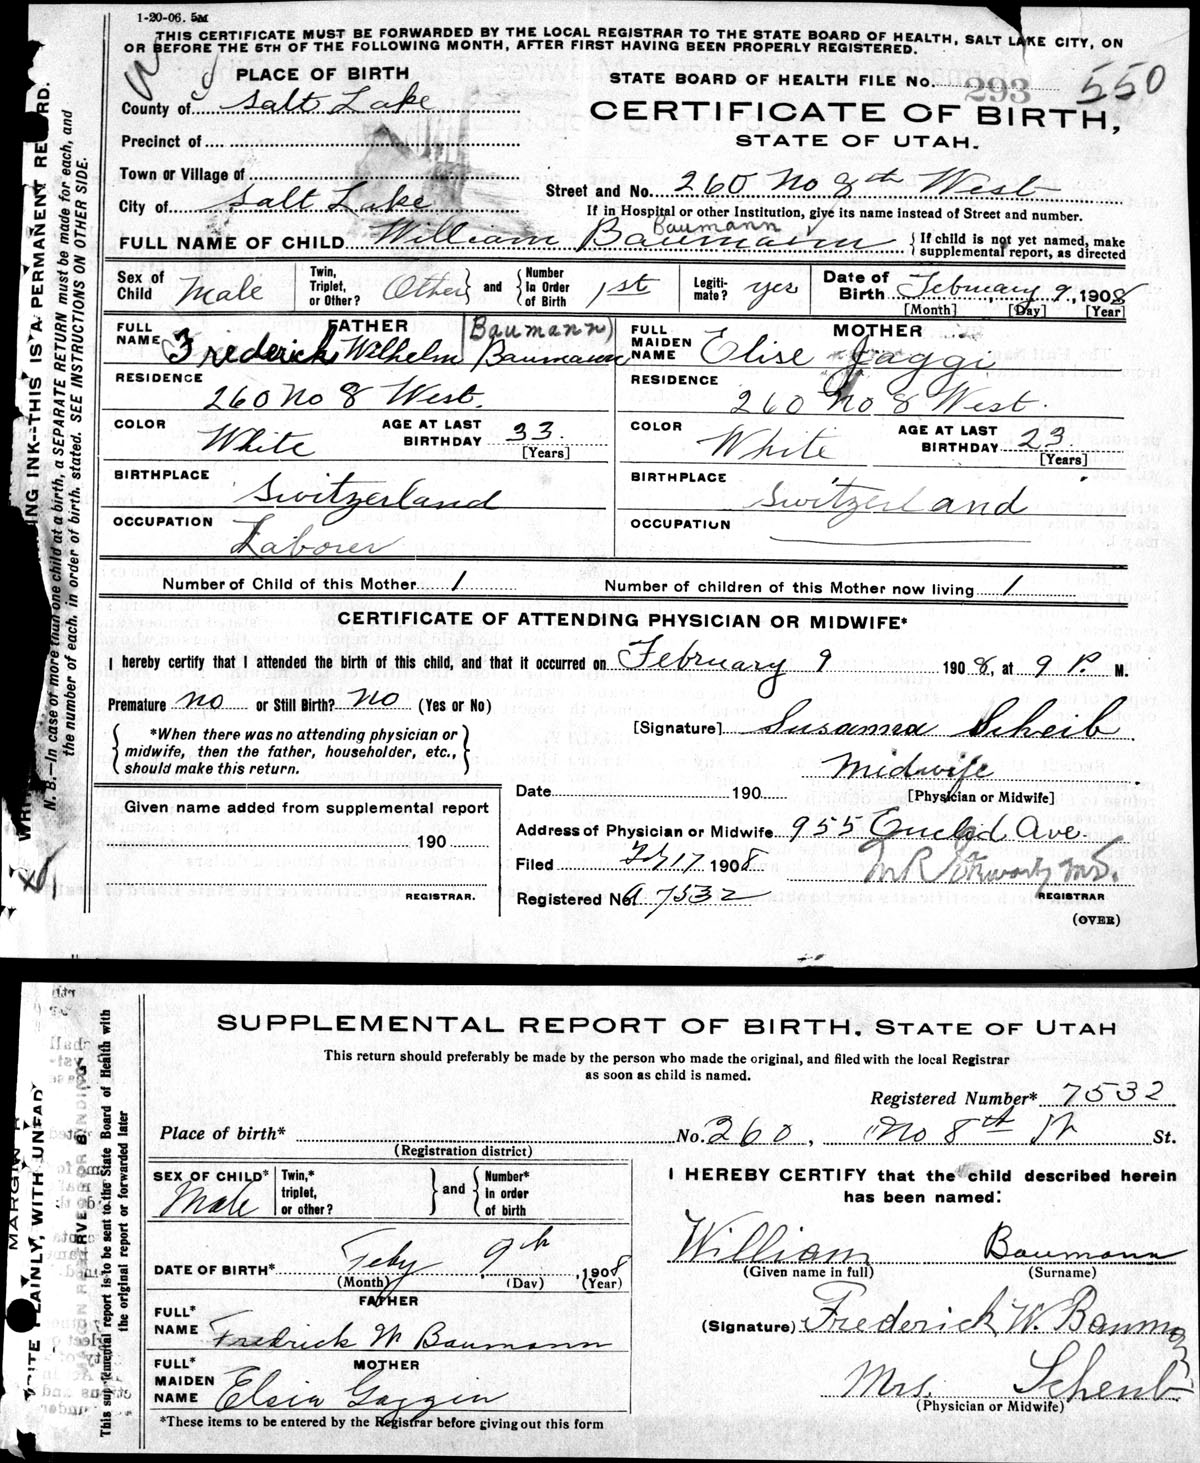 1-20-06. 5M
THIS CERTIFICATE MUST BE FORWARDED BY THE LOCAL REGISTRAR TO THE STATE BOARD OF HEALTH, SALT LAKE CITY, ON
OR BEFORE THE 5TH OF THE FOLLOWING MONTH, AFTER FIRST HAVING BEEN PROPERLY REGISTERED.
PLACE OF BIRTH
STATE BOARD OF HEALTH FILE No. 293 550
County of Salt Lake
CERTIFICATE OF BIRTH,
STATE OF UTAH.
Precinct of
Town or Village of
Street and No. 260 No 8th West
City of Salt Lake
If in Hospital or other Institution, give its name instead of Street and number.
Baumann
FULL NAME OF CHILD William Baumann { If child is not yet named, make
supplemental report, as directed
Sex of Child Male Twin, Triplet, or Other? Other and Number in Order of Birth 1st Legiti-mate? yes Date of Birth February 9, 1908
[Month] [Day] [Year]
FATHER Baumann) MOTHER
FULL NAME Frederick Wilhelm Baumann FULL MAIDEN NAME Elise Jaggi
RESIDENCE 260 No 8 West. RESIDENCE 260 No 8 West.
COLOR White AGE AT LAST BIRTHDAY 33. [Years] COLOR White AGE AT LAST BIRTHDAY 23 [Years]
BIRTHPLACE Switzerland BIRTHPLACE Switzerland
OCCUPATION Laborer OCCUPATION
Number of Child of this Mother 1 Number of children of this Mother now living 1
CERTIFICATE OF ATTENDING PHYSICIAN OR MIDWIFE*
I hereby certify that I attended the birth of this child, and that it occurred on February 9 1908, at 9 P. M.
Premature no or Still Birth? no (Yes or No)
[Signature] Susanna Scheib
*When there was no attending physician or
midwife, then the father, householder, etc.,
should make this return.
Midwife
[Physician or Midwife]
Date 190
Given name added from supplemental report
190
REGISTRAR.
Address of Physician or Midwife 955 Euclid Ave.
Filed Feb 17 1908
Registered No. A 7532
REGISTRAR
(OVER)
ING INK--THIS IS A PERMANENT RECORD.
N. B.--In case of more than one child at a birth, a SEPARATE RETURN must be made for each, and
the number of each, in order of birth, stated. SEE INSTRUCTIONS ON OTHER SIDE.
SUPPLEMENTAL REPORT OF BIRTH, STATE OF UTAH
This return should preferably be made by the person who made the original, and filed with the local Registrar
as soon as child is named.
Registered Number* 7532
Place of birth* No. 260, No 8th W St.
(Registration district)
SEX OF CHILD* Male Twin,* triplet, or other? and Number* in order of birth
I HEREBY CERTIFY that the child described herein
has been named:
William Baumann
(Given name in full) (Surname)
DATE OF BIRTH* Feby 9th, 1908
(Month) (Day) (Year)
FATHER
FULL* NAME Fredrick W Baumann
(Signature) Frederick W. Baumann
MOTHER
FULL* MAIDEN NAME Elsia Gaggin
Mrs. Schenb
(Physician or Midwife)
*These items to be entered by the Registrar before giving out this form
MARGIN R
WRITE PLAINLY, WITH UNFAD
RESERVED FOR BINDING
This supplemental report is to be sent to the State Board of Health with
the original report or forwarded later